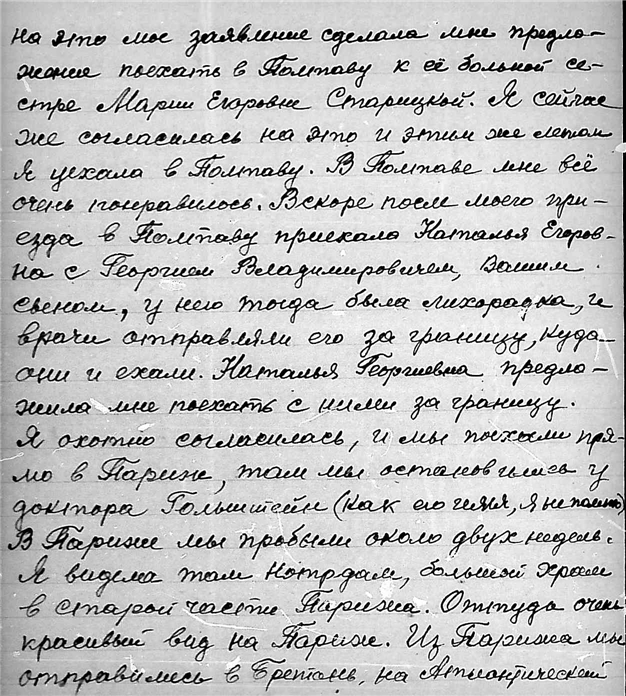 на это мое заявление сделала мне предло-
жение поехать в Полтаву к её больной се-
стре Марии Егоровне Старицкой. Я сейчас
же согласилась на это и этим же летом
я уехала в Полтаву. В Полтаве мне всё
очень понравилось. Вскоре после моего при-
езда в Полтаву приехала Наталья Егоров-
на с Георгием Владимировичем, Вашим
сыном, у него тогда была лихорадка, и
врачи отправляли его за границу, куда
они и ехали. Наталья Георгиевна предло-
жила мне поехать с ними за границу.
Я охотно согласилась, и мы поехали пря-
мо в Париж, там мы остановились у
доктора Гольштейн (как его имя, я не помню)
В Париже мы пробыли около двух недель.
Я видела там Нотрдам, большой храм
в старой части Парижа. Оттуда очень
красивый вид на Париж. Из Парижа мы
отправились в Бретань, на Атлантический